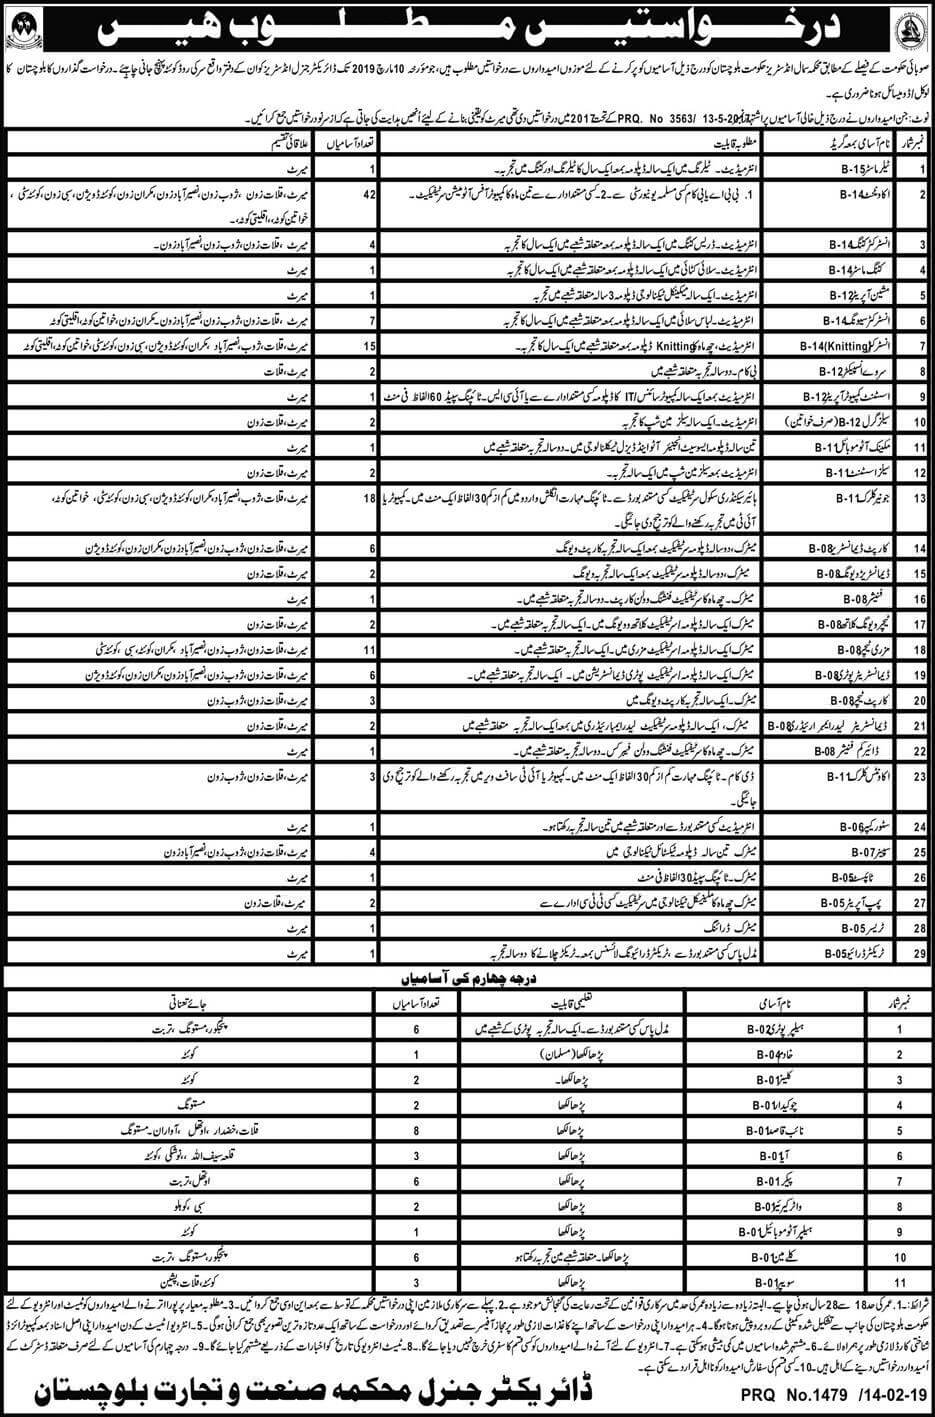 درخواستیں مطلوب ہیں
صوبائی حکومت کے فیصلے کے مطابق محکمہ سمال انڈسٹریز حکومت بلوچستان کو درج ذیل آسامیوں کو پر کرنے کے لئے موزوں امیدواروں سے درخواستیں مطلوب ہیں، جو مورخہ 10 مارچ 2019 تک ڈائریکٹر جنرل انڈسٹریز کو ان کے دفتر واقع سرکی روڈ کوئٹہ پہنچ جانی چاہیئے۔ درخواست گذاروں کا بلوچستان کا
لوکل/ڈومیسائل ہونا ضروری ہے۔
نوٹ: جن امیدواروں نے درج ذیل خالی آسامیوں پر اشتہار نمبر PRQ. No 3563/ 13-5-2017 کے تحت 2017 میں درخواستیں دی تھی میرٹ کو یقینی بنانے کے لیئے اُنھیں ہدایت کی جاتی ہے کہ از سر نو درخواستیں جمع کرائیں۔
نمبر شمار نام آسامی بمعہ گریڈ مطلوبہ قابلیت تعداد آسامیاں علاقائی تقسیم
1 ٹیلر ماسٹر B-15 انٹرمیڈیٹ۔ ٹیلرنگ میں ایک سالہ ڈپلومہ بمعہ ایک سال کا ٹیلرنگ اور کٹنگ میں تجربہ۔ 1 میرٹ
2 اکاونٹنٹ B-14 1۔ بی بی اے یا بی کام کسی مسلمہ یونیورسٹی سے۔ 2۔ کسی مستند ادارے سے تین ماہ کا کمپیوٹر آفس آٹومیشن سرٹیفکیٹ۔ 42 میرٹ، قلات زون، ژوب زون، نصیر آباد زون، مکران زون، کوئٹہ ڈویژن، سبی زون، کوئٹہ سٹی،
خواتین کوٹہ، اقلیتی کوٹہ،
3 انسٹرکٹر کٹنگ B-14 انٹرمیڈیٹ۔ ڈریس کٹنگ میں ایک سالہ ڈپلومہ بمعہ متعلقہ شعبے میں ایک سال کا تجربہ 4 میرٹ، قلات زون، ژوب زون، نصیر آباد زون۔
4 کٹنگ ماسٹر B-14 انٹرمیڈیٹ۔ سلائی کٹائی میں ایک سالہ ڈپلومہ بمعہ متعلقہ شعبے میں ایک سال کا تجربہ 1 میرٹ
5 مشین آپریٹر B-12 انٹرمیڈیٹ۔ ایک سالہ میکینکل ٹیکنالوجی ڈپلومہ 3 سالہ متعلقہ شعبے میں تجربہ 1 میرٹ
6 انسٹرکٹر سیونگ B-14 انٹرمیڈیٹ۔ لباس سلائی میں ایک سالہ ڈپلومہ بمعہ متعلقہ شعبے میں ایک سال کا تجربہ 7 میرٹ، قلات زون، ژوب زون، نصیر آباد زون۔ مکران زون، خواتین کوٹہ، اقلیتی کوٹہ
7 انسٹرکٹر (Knitting) B-14 انٹرمیڈیٹ، چھ ماہ کا Knitting ڈپلومہ بمعہ متعلقہ شعبے میں ایک سال کا تجربہ۔ 15 میرٹ، قلات، ژوب، نصیر آباد، مکران، کوئٹہ ڈویژن، سبی زون، کوئٹہ سٹی، خواتین کوٹہ، اقلیتی کوٹہ
8 سروے انسپیکٹر B-12 بی کام۔ دو سالہ تجربہ متعلقہ شعبے میں 2 میرٹ، قلات
9 اسسٹنٹ کمپیوٹر آپریٹر B-12 انٹرمیڈیٹ بمعہ ایک سالہ کمپیوٹر سائنس/IT کا ڈپلومہ کسی مستند ادارے سے یا آئی سی ایس۔ ٹائپنگ سپیڈ 60 الفاظ فی منٹ 1 میرٹ
10 سیلز گرل B-12 (صرف خواتین) انٹرمیڈیٹ۔ ایک سالہ سیلز مین شپ کا تجربہ 2 میرٹ، قلات زون
11 مکینک آٹوموبائل B-11 تین سالہ ڈپلومہ ایسوسیٹ انجینئر آٹو اینڈ ڈیزل ٹیکنالوجی میں۔ دو سالہ تجربہ متعلقہ شعبے میں 1 میرٹ
12 سیلز اسسٹنٹ B-11 انٹرمیڈیٹ بمعہ سیلز مین شپ میں ایک سالہ تجربہ۔ 2 میرٹ، قلات زون
13 جونیئر کلرک B-11 ہائیر سیکنڈری سکول سرٹیفکیٹ کسی مستند بورڈ سے۔ ٹائپنگ مہارت انگلش و اردو میں کم از کم 30 الفاظ ایک منٹ میں۔ کمپیوٹر یا 18 میرٹ، قلات، ژوب، نصیر آباد، مکران، کوئٹہ ڈویژن، سبی زون، کوئٹہ سٹی، خواتین کوٹہ،
آئی ٹی میں تجربہ رکھنے والے کو ترجیح دی جائیگی۔
14 کارپٹ ڈیمانسٹریٹر B-08 میٹرک، دو سالہ ڈپلومہ/سرٹیفکیٹ بمعہ ایک سالہ تجربہ کارپٹ ویونگ 6 میرٹ، قلات زون، ژوب زون، نصیر آباد زون، مکران زون، کوئٹہ ڈویژن
15 ڈیمانسٹریٹر ویونگ B-08 میٹرک، دو سالہ ڈپلومہ/سرٹیفکیٹ بمعہ ایک سالہ تجربہ ویونگ 2 میرٹ، قلات زون
16 فنیشر B-08 میٹرک۔ چھ ماہ کا سرٹیفکیٹ فنشنگ وولن کارپٹ۔ دو سالہ تجربہ متعلقہ شعبے میں۔ 1 میرٹ
17 ٹیچر ویونگ کلاتھ B-08 میٹرک ایک سالہ ڈپلومہ/سرٹیفکیٹ کلاتھ ویونگ میں۔ ایک سالہ تجربہ متعلقہ شعبے میں۔ 2 میرٹ، قلات زون
18 مزری ٹیچر B-08 میٹرک ایک سالہ ڈپلومہ/سرٹیفکیٹ مزری میں۔ ایک سالہ تجربہ متعلقہ شعبے میں۔ 11 میرٹ، قلات زون، ژوب زون، نصیر آباد، مکران، کوئٹہ، سبی، کوئٹہ سٹی
19 ڈیمانسٹریٹر پوٹری B-08 میٹرک ایک سالہ ڈپلومہ/سرٹیفکیٹ پوٹری ڈیمانسٹریشن میں۔ ایک سالہ تجربہ متعلقہ شعبے میں۔ 6 میرٹ، قلات زون، ژوب زون، نصیر آباد زون، مکران زون، کوئٹہ ڈویژن
20 کارپٹ ٹیچر B-08 میٹرک۔ ایک سالہ تجربہ کارپٹ ویونگ میں 3 میرٹ، قلات زون، ژوب زون
21 ڈیمانسٹریٹر لیدر ایمبرائیڈری B-08 میٹرک، ایک سالہ ڈپلومہ سرٹیفکیٹ لیدر ایمبرائیڈری میں بمعہ ایک سالہ تجربہ متعلقہ شعبے میں 2 میرٹ، قلات زون
22 ڈائیر کم فنیشر B-08 میٹرک۔ چھ ماہ کا سرٹیفکیٹ فنشنگ وولن فیبرکس۔ دو سالہ تجربہ متعلقہ شعبے میں۔ 1 میرٹ
23 اکاونٹس کلرک B-11 ڈی کام۔ ٹائپنگ مہارت کم از کم 30 الفاظ ایک منٹ میں۔ کمپیوٹر یا آئی ٹی سافٹ ویر میں تجربہ رکھنے والے کو ترجیح دی 3 میرٹ، قلات زون، ژوب زون
جائیگی۔
24 سٹور کیپر B-06 انٹرمیڈیٹ کسی مستند بورڈ سے اور متعلقہ شعبے میں تین سالہ تجربہ رکھتا ہو۔ 1 میرٹ
25 سپینر B-07 میٹرک تین سالہ ڈپلومہ ٹیکسٹائل ٹیکنالوجی میں 4 میرٹ، قلات زون، ژوب زون، نصیر آباد زون
26 ٹائپسٹ B-05 میٹرک۔ ٹائپنگ سپیڈ 30 الفاظ فی منٹ 1 میرٹ
27 پمپ آپریٹر B-05 میٹرک چھ ماہ کا مکینیکل ٹیکنالوجی میں سرٹیفکیٹ کسی ٹی ٹی سی ادارے سے 2 میرٹ، قلات زون
28 ٹریسر B-05 میٹرک ڈرائنگ 1 میرٹ
29 ٹریکٹر ڈرائیور B-05 مڈل پاس کسی مستند بورڈ سے، ٹریکٹر ڈرائیونگ لائسنس بمعہ۔ ٹریکٹر چلانے کا دو سالہ تجربہ 1 میرٹ
درجہ چہارم کی آسامیاں
نمبر شمار نام آسامی تعلیمی قابلیت تعداد آسامیاں جائے تعیناتی
1 ہیلپر پوٹری B-02 مڈل پاس کسی مستند بورڈ سے۔ ایک سالہ تجربہ پوٹری کے شعبے میں 6 پنجگور، مستونگ، تربت
2 خادم B-04 پڑھا لکھا (مسلمان) 1 کوئٹہ
3 کلینر B-01 پڑھا لکھا۔ 2 کوئٹہ
4 چوکیدار B-01 پڑھا لکھا 2 مستونگ
5 نائب قاصد B-01 پڑھا لکھا 8 قلات، خضدار، اوتھل، آواران۔ مستونگ
6 آیا B-01 پڑھا لکھا 3 قلعہ سیف اللہ، نوشکی، کوئٹہ
7 پیکر B-01 پڑھا لکھا 6 اوتھل، تربت
8 واٹر کیرئیر B-01 پڑھا لکھا 2 سبی، کوہلو
9 ہیلپر آٹوموبائیل B-01 پڑھا لکھا 1 کوئٹہ
10 کلے مین B-01 پڑھا لکھا۔ متعلقہ شعبے میں تجربہ رکھتا ہو 6 پنجگور، مستونگ، تربت
11 سویپر B-01 پڑھا لکھا 3 کوئٹہ، قلات، پشین
شرائط:۔ 1۔ عمر کی حد 18 سے 28 سال ہونی چاہیے۔ البتہ زیادہ سے زیادہ عمر کی حد میں سرکاری قوانین کے تحت رعایت کی گنجائش موجود ہے۔ 2۔ پہلے سے سرکاری ملازمین اپنی درخواستیں محکمہ کے توسط سے بمعہ این او سی جمع کروائیں۔ 3۔ مطلوبہ معیار پر پورا اترنے والے امیدواروں کو ٹیسٹ اور انٹرویو کے لئے
حکومت بلوچستان کی جانب سے تشکیل شدہ کمیٹی کے روبرو پیش ہونا ہوگا۔ 4۔ ہر امیدوار اپنی درخواست کے ساتھ اپنے کاغذات لازمی طور پر مجاز آفیسر سے تصدیق کروائے اور درخواست کے ساتھ ایک عدد تازہ ترین تصویر بھی جمع کرانی ہوگی۔ 5۔ انٹرویو/ٹیسٹ کے دن امیدوار اپنی اصل اسناد بمعہ کمپیوٹرائزڈ
شناختی کارڈ لازمی طور پر ہمراہ لائے۔ 6۔ مشتہر شدہ اسامیوں میں کمی بیشی ہو سکتی ہے۔ 7۔ انٹرویو کے لئے آنے والے امیدواروں کو کسی قسم کا سفری خرچ نہیں دیا جائے گا۔ 8۔ ٹیسٹ/انٹرویو کی تاریخ کو اخبارات کے ذریعے مشتہر کیا جائے گا۔ 9۔ درجہ چہارم کی آسامیوں کے لئے صرف متعلقہ ڈسٹرکٹ کے
امیدوار درخواستیں دینے کے اہل ہیں۔ 10۔ کسی قسم کی سفارش امیدوار کو نا اہل قرار دے سکتی ہے۔
ڈائریکٹر جنرل محکمہ صنعت و تجارت بلوچستان
PRQ No.1479 /14-02-19